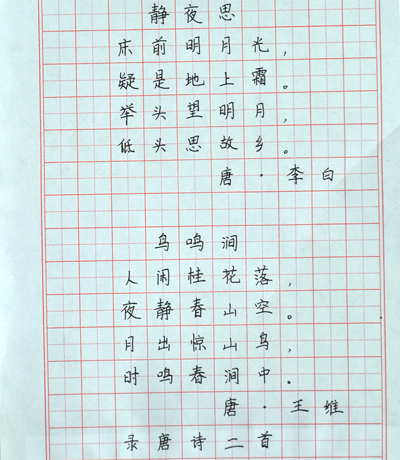 静夜思
床前明月光，
疑是地上霜。
举头望明月，
低头思故乡。
唐·李白
鸟鸣涧
人闲桂花落，
夜静春山空。
月出惊山鸟，
时鸣春涧中。
唐·王维
录唐诗二首